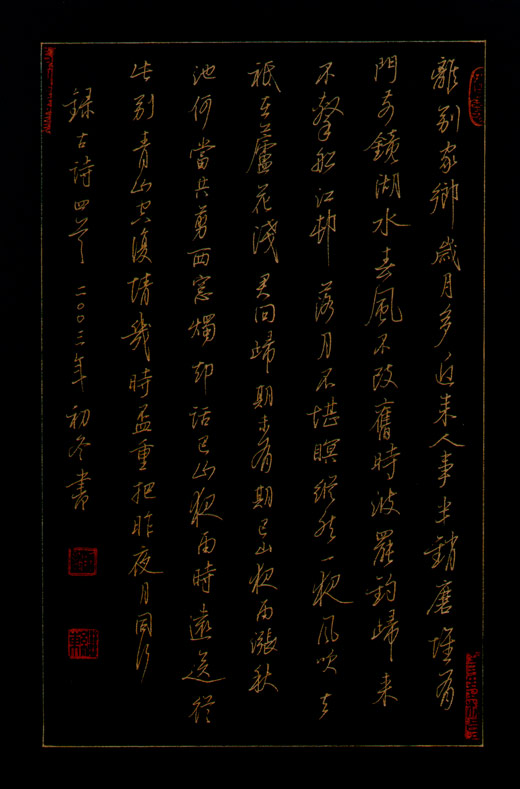 離别家鄉歲月多近来人事半銷磨惟有
門前鏡湖水春風不改舊時波罷釣歸来
不繫船江邨落月不堪瞑縱然一夜風吹去
祗在蘆花淺君问歸期未有期巴山夜雨漲秋
池何當共剪西窓燭却話巴山夜雨時遠送從
此别青山空復情幾時盃重把昨夜月同行
録古詩四首 二〇〇三年初冬書